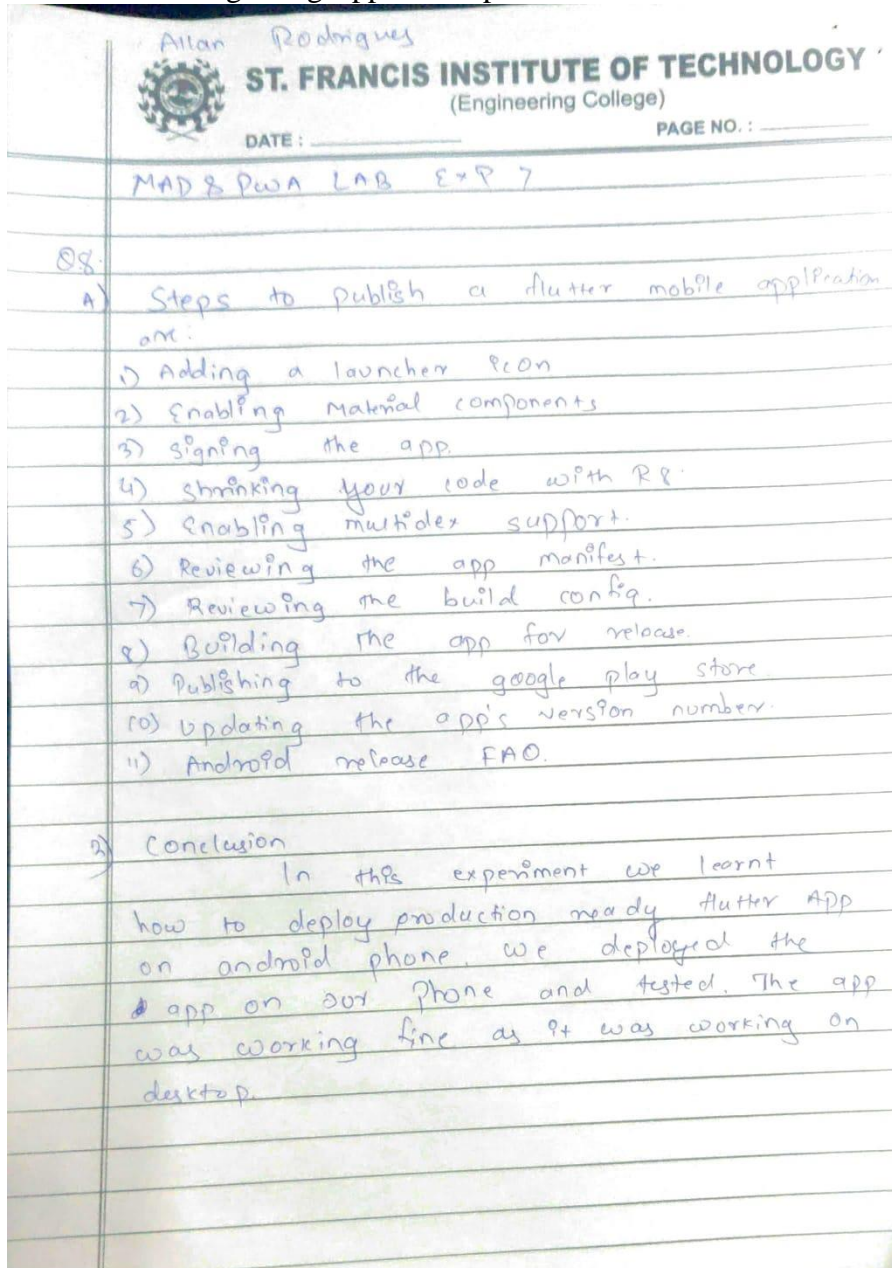 Allan Rodrigues
ST. FRANCIS INSTITUTE OF TECHNOLOGY
(Engineering College)
DATE : PAGE NO. :
MAD & PWA LAB EXP 7
Q8.
A) Steps to publish a flutter mobile application
are:
1) Adding a launcher icon
2) Enabling Material components
3) Signing the app.
4) Shrinking your code with R8.
5) Enabling multidex support.
6) Reviewing the app manifest.
7) Reviewing the build config.
8) Building the app for release.
9) Publishing to the google play store
10) Updating the app's version number.
11) Android release FAQ.
2) Conclusion
In this experiment we learnt
how to deploy production ready flutter App
on android phone. we deployed the
app on our Phone and tested. The app
was working fine as it was working on
desktop.